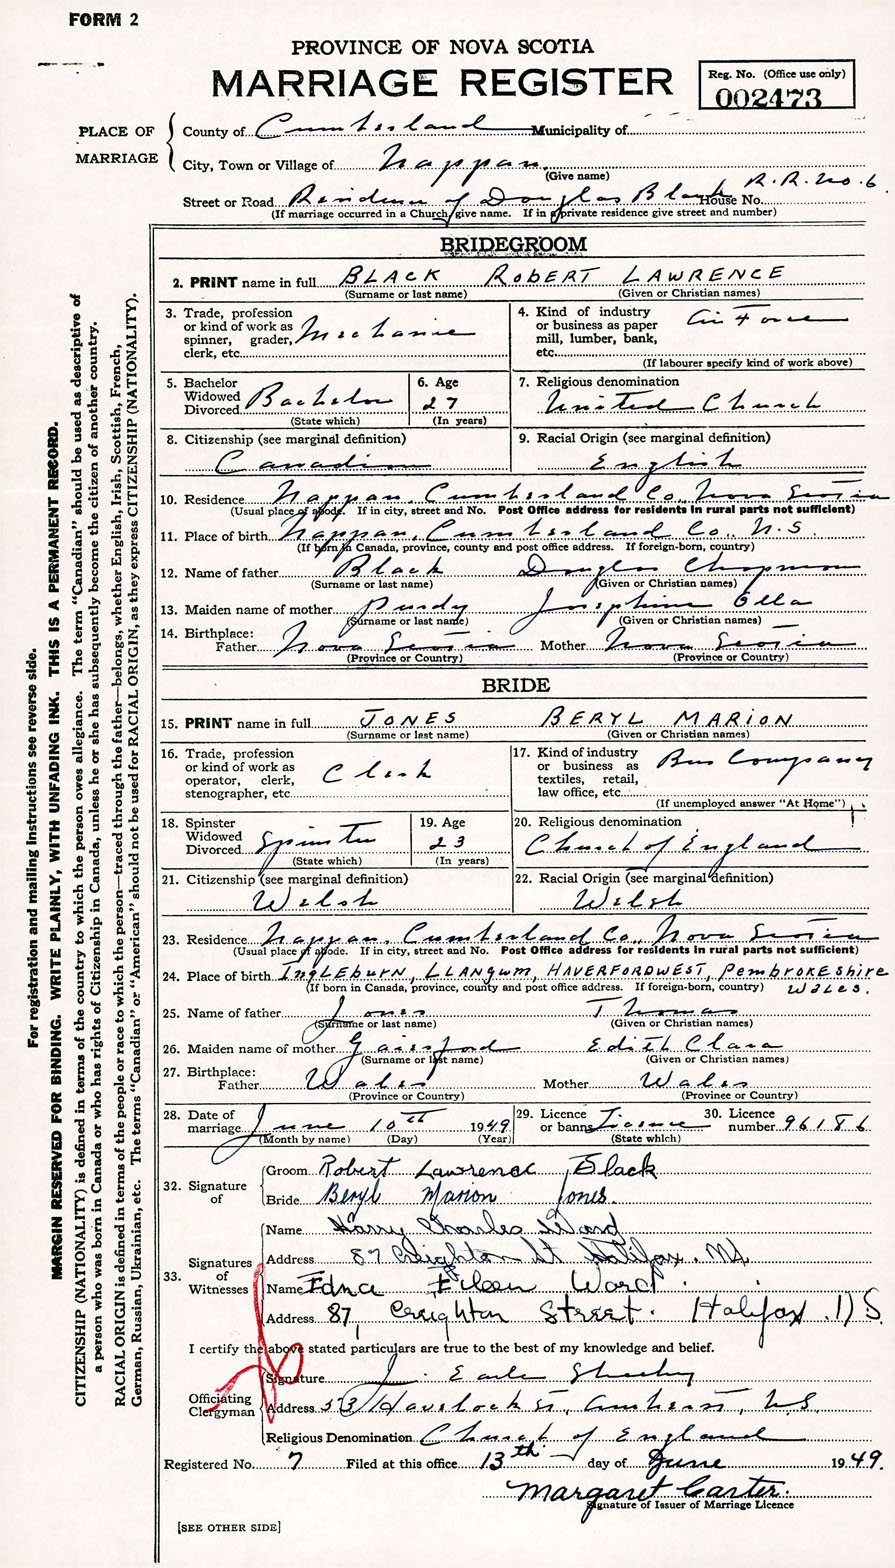 FORM 2
PROVINCE OF NOVA SCOTIA
MARRIAGE REGISTER
Reg. No. (Office use only)
002473
PLACE OF MARRIAGE
County of Cumberland Municipality of
City, Town or Village of Nappan.
(Give name)
Street or Road Residence of Douglas Black House No. R.R. No. 6.
(If marriage occurred in a Church, give name. If in a private residence give street and number)
BRIDEGROOM
2. PRINT name in full BLACK ROBERT LAWRENCE
(Surname or last name) (Given or Christian names)
3. Trade, profession or kind of work as spinner, grader, clerk, etc. Mechanic
4. Kind of industry or business as paper mill, lumber, bank, etc. Air Force
(If labourer specify kind of work above)
5. Bachelor Widowed Divorced Bachelor
(State which)
6. Age 27
(In years)
7. Religious denomination
United Church
8. Citizenship (see marginal definition)
Canadian
9. Racial Origin (see marginal definition)
English
10. Residence Nappan, Cumberland Co., Nova Scotia
(Usual place of abode. If in city, street and No. Post Office address for residents in rural parts not sufficient)
11. Place of birth Nappan, Cumberland Co., N.S
(If born in Canada, province, county and post office address. If foreign-born, country)
12. Name of father Black Douglas Chapman
(Surname or last name) (Given or Christian names)
13. Maiden name of mother Purdy Josephine Ella
(Surname or last name) (Given or Christian names)
14. Birthplace:
Father Nova Scotia Mother Nova Scotia
(Province or Country) (Province or Country)
BRIDE
15. PRINT name in full JONES BERYL MARION
(Surname or last name) (Given or Christian names)
16. Trade, profession or kind of work as operator, clerk, stenographer, etc. Clerk
17. Kind of industry or business as textiles, retail, law office, etc. Bus Company
(If unemployed answer "At Home")
18. Spinster Widowed Divorced Spinster
(State which)
19. Age 23
(In years)
20. Religious denomination
Church of England
21. Citizenship (see marginal definition)
Welsh
22. Racial Origin (see marginal definition)
Welsh
23. Residence Nappan, Cumberland Co., Nova Scotia
(Usual place of abode. If in city, street and No. Post Office address for residents in rural parts not sufficient)
24. Place of birth INGLEBURN, LLANGWM, HAVERFORDWEST, PEMBROKESHIRE
(If born in Canada, province, county and post office address. If foreign-born, country) WALES.
25. Name of father Jones Thomas
(Surname or last name) (Given or Christian names)
26. Maiden name of mother Gainsford Edith Clara
(Surname or last name) (Given or Christian names)
27. Birthplace:
Father Wales Mother Wales
(Province or Country) (Province or Country)
28. Date of marriage June 10th 1949
(Month by name) (Day) (Year)
29. Licence or banns Licence
(State which)
30. Licence number 96186
32. Signature of
Groom Robert Lawrence Black
Bride Beryl Marion Jones.
33. Signatures of Witnesses
Name Harry Charles Ward
Address 87 Creighton St Halifax. N.S.
Name Edna Eileen Ward.
Address 87, Creighton Street. Halifax. N S.
I certify the above stated particulars are true to the best of my knowledge and belief.
Officiating Clergyman
Signature J. Earle
Address 53 Havelock St., Amherst, N.S.
Religious Denomination Church of England
Registered No. 7 Filed at this office 13th day of June 1949.
Margaret Carter.
Signature of Issuer of Marriage Licence
[SEE OTHER SIDE]
For registration and mailing instructions see reverse side.
MARGIN RESERVED FOR BINDING. WRITE PLAINLY, WITH UNFADING INK. THIS IS A PERMANENT RECORD.
CITIZENSHIP (NATIONALITY) is defined in terms of the country to which the person owes allegiance. The term "Canadian" should be used as descriptive of
a person who was born in Canada or who has rights of Citizenship in Canada, unless he or she has subsequently become the citizen of another country.
RACIAL ORIGIN is defined in terms of the people or race to which the person—traced through the father—belongs, whether English, Irish, Scottish, French,
German, Russian, Ukrainian, etc. The terms "Canadian" or "American" should not be used for RACIAL ORIGIN, as they express CITIZENSHIP (NATIONALITY).